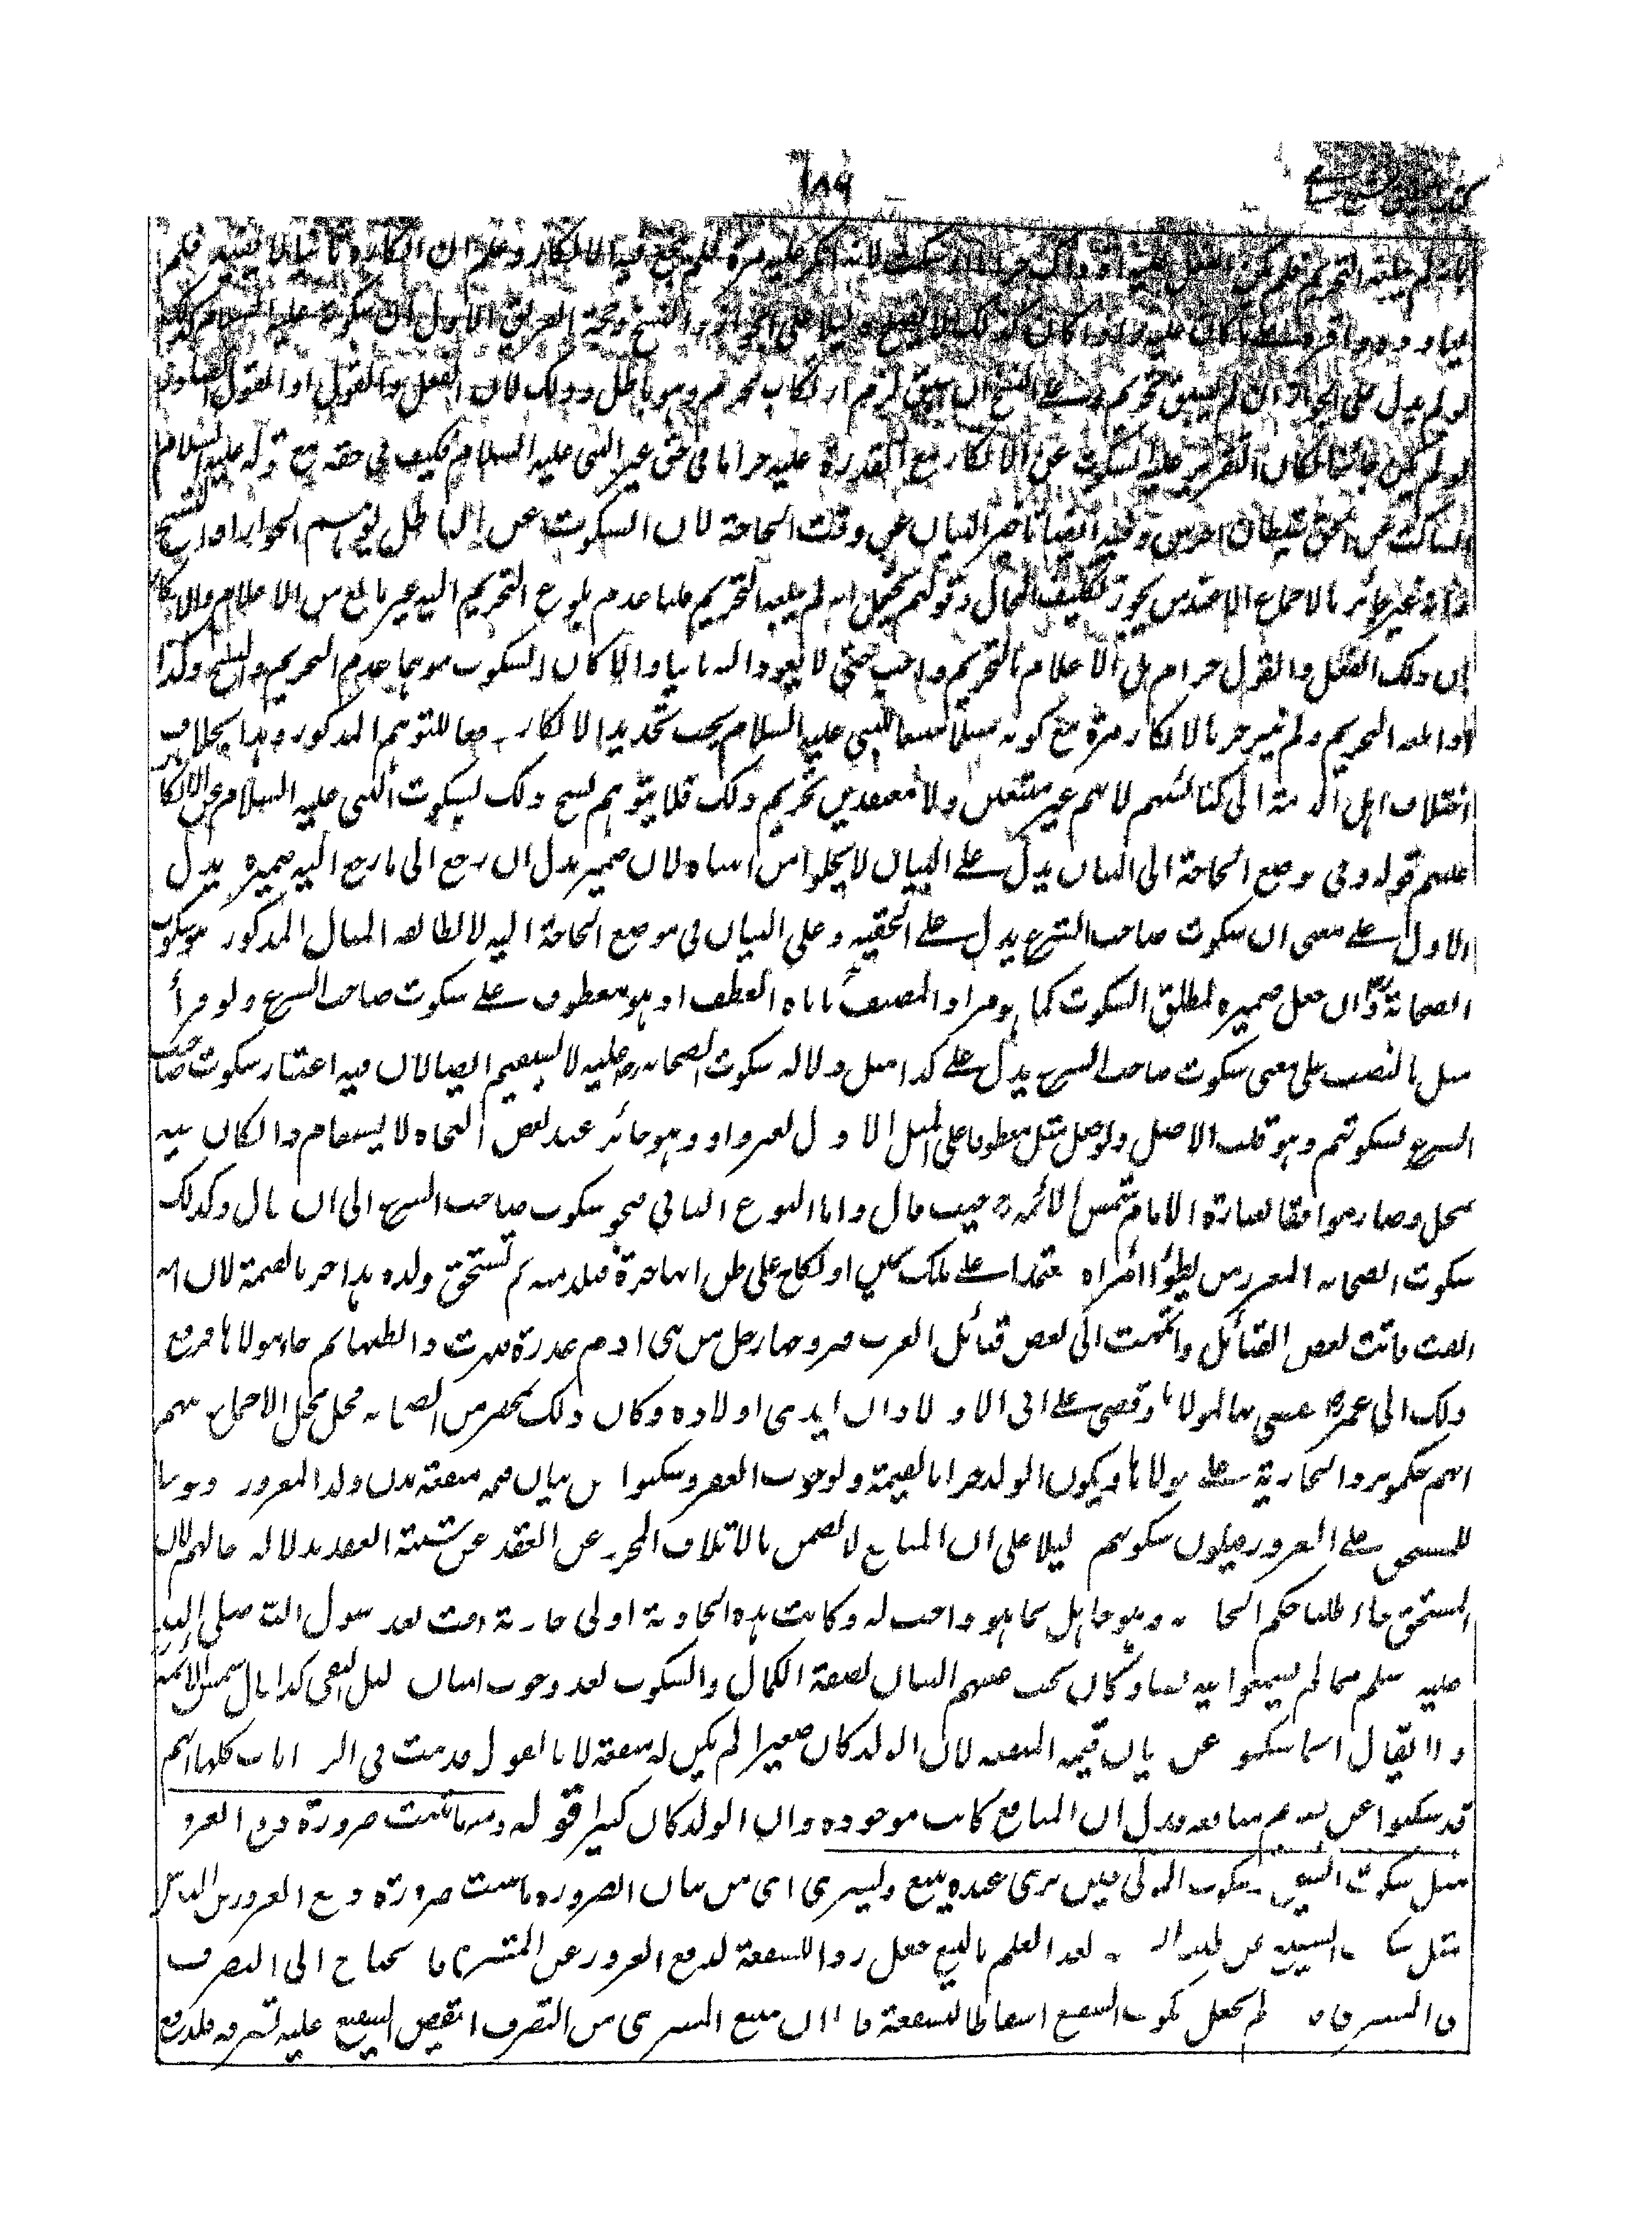 لم يبلغه التحريم فلم يكن الفعل عليه اذ ذاك حراما او سكت لانه انكر عليه مرة فلم ينجع فيه الانكار وعلم ان انكاره ثانيا لا يفيد فلم
يعاوده واقره على ما كان عليه واذا كان كذلك لا يصلح دليلا على الجواز والنسخ وحجة الفريق الاول ان سكوته عليه السلام
لو لم يدل على الجواز ان لم يسبق تحريم وعلى النسخ ان سبق لزم ارتكاب محرم وهو باطل وذلك لان الفعل والقول او القول الصادر
لو لم يكن جائزا لكان التقرير عليه والسكوت عن الانكار مع القدرة عليه حراما فى حق غير النبى عليه السلام فكيف فى حقه مع قوله عليه السلام
الساكت عن الحق شيطان اخرس وفيه ايضا تاخير البيان عن وقت الحاجة لان السكوت عن الباطل يوهم الجواز او النسخ
وانه غير جائز بالاجماع الا عند من يجوز تكليف المحال وقولهم يحتمل انه لم يبلغه التحريم قلنا عدم بلوغ التحريم اليه غير مانع من الاعلام والانكار
بان ذلك الفعل والقول حرام بل الاعلام بالتحريم واجب حتى لا يعود اليه ثانيا والا كان السكوت موهما عدم التحريم والنسخ وكذا
اذا بلغه التحريم ولم ينزجر بالانكار مرة مع كونه مسلما متبعا للنبى عليه السلام يجب تجديد الانكار دفعا للتوهم المذكور وهذا بخلاف
اختلاف اهل الذمة الى كنائسهم لانهم غير متبعين ولا معتقدين تحريم ذلك فلا يتوهم نسخ ذلك بسكوت النبى عليه السلام عن الانكار
عليهم قوله وفى موضع الحاجة الى البيان يدل على البيان لا يخلوا من اشتباه لان ضمير يدل ان رجع الى ما رجع اليه ضمير يدل
الاول على معنى ان سكوت صاحب الشرع يدل على الحقية وعلى البيان فى موضع الحاجة اليه لا يطابقه المثال المذكور وهو سكوت
الصحابة وان جعل ضميره لمطلق السكوت كما هو مراد المصنف اباه العطف اذ هو معطوف على سكوت صاحب الشرع ولو قرأ
مثل بالنصب على معنى سكوت صاحب الشرع يدل على كذا مثل دلالة سكوت الصحابة عليه لا يستقيم ايضا لان فيه اعتبار سكوت صاحب
الشرع بسكوتهم وهو قلب الاصل ولو جعل مثل معطوفا على المثل الاول بغير واو وهو جائز عند بعض النحاة لاستقام وان كان فيه
تمحل وصار موافقا لعبارة الامام شمس الائمة حيث قال واما النوع الثانى فنحو سكوت صاحب الشرع الى ان قال وكذلك
سكوت الصحابة المغرور من يطؤ امراة معتمدا على ملك يمين او نكاح على ظن انها حرة فتلد منه ثم تستحق وولده هذا حر بالقيمة لان امة
ابقت فاتت بعض القبائل وانتمت الى بعض قبائل العرب فتزوجها رجل من بنى عذرة فولدت ذا بطنها ثم جاء مولاها فرفع
ذلك الى عمر فقضى بها لمولاها وقضى على ابى الاولاد ان يفدى اولاده وكان ذلك بمحضر من الصحابة فحل محل الاجماع منهم
انهم حكموا برد الجارية على مولاها وبكون الولد حرا بالقيمة وبوجوب العقر وسكتوا عن بيان قيمة منفعة بدن ولد المغرور ووجوبها
للمستحق على المغرور فيكون سكوتهم دليلا على ان المنافع لا تضمن بالاتلاف المجرد عن العقد وعن شبهة العقد بدلالة حالهم لان
المستحق جاء طالبا حكم الحادثة وهو جاهل بما هو واجب له وكانت هذه الحادثة اولى حادثة وقعت بعد رسول الله صلى الله
عليه وسلم مما لم يسمعوا فيه نصا وكان يجب عليهم البيان بصفة الكمال والسكوت بعد وجوب البيان دليل النفى كذا قال شمس الائمة
ولا يقال انما سكتوا عن بيان قيمة المنفعة لان الولد كان صغيرا لم يكن له منفعة لانا نقول قد ثبت فى الروايات كلها انهم
قد سكتوا عن تقويم منافعه فدل ان المنافع كانت موجودة وان الولد كان كبيرا قوله ومنه ما ثبت ضرورة دفع الغرور
مثل سكوت الشفيع وسكوت المولى حين يرى عبده يبيع ويشترى اى من بيان الضرورة ما يثبت ضرورة دفع الغرور عن الناس
مثل سكوت الشفيع عن طلب الشفعة بعد العلم بالبيع جعل ردا للشفعة لدفع الغرور عن المشترى فانه يحتاج الى التصرف
فى المشترى فان لم يجعل سكوت الشفيع اسقاطا للشفعة فاما ان يمتنع المشترى من التصرف او ينقض الشفيع عليه تصرفه فلدفع